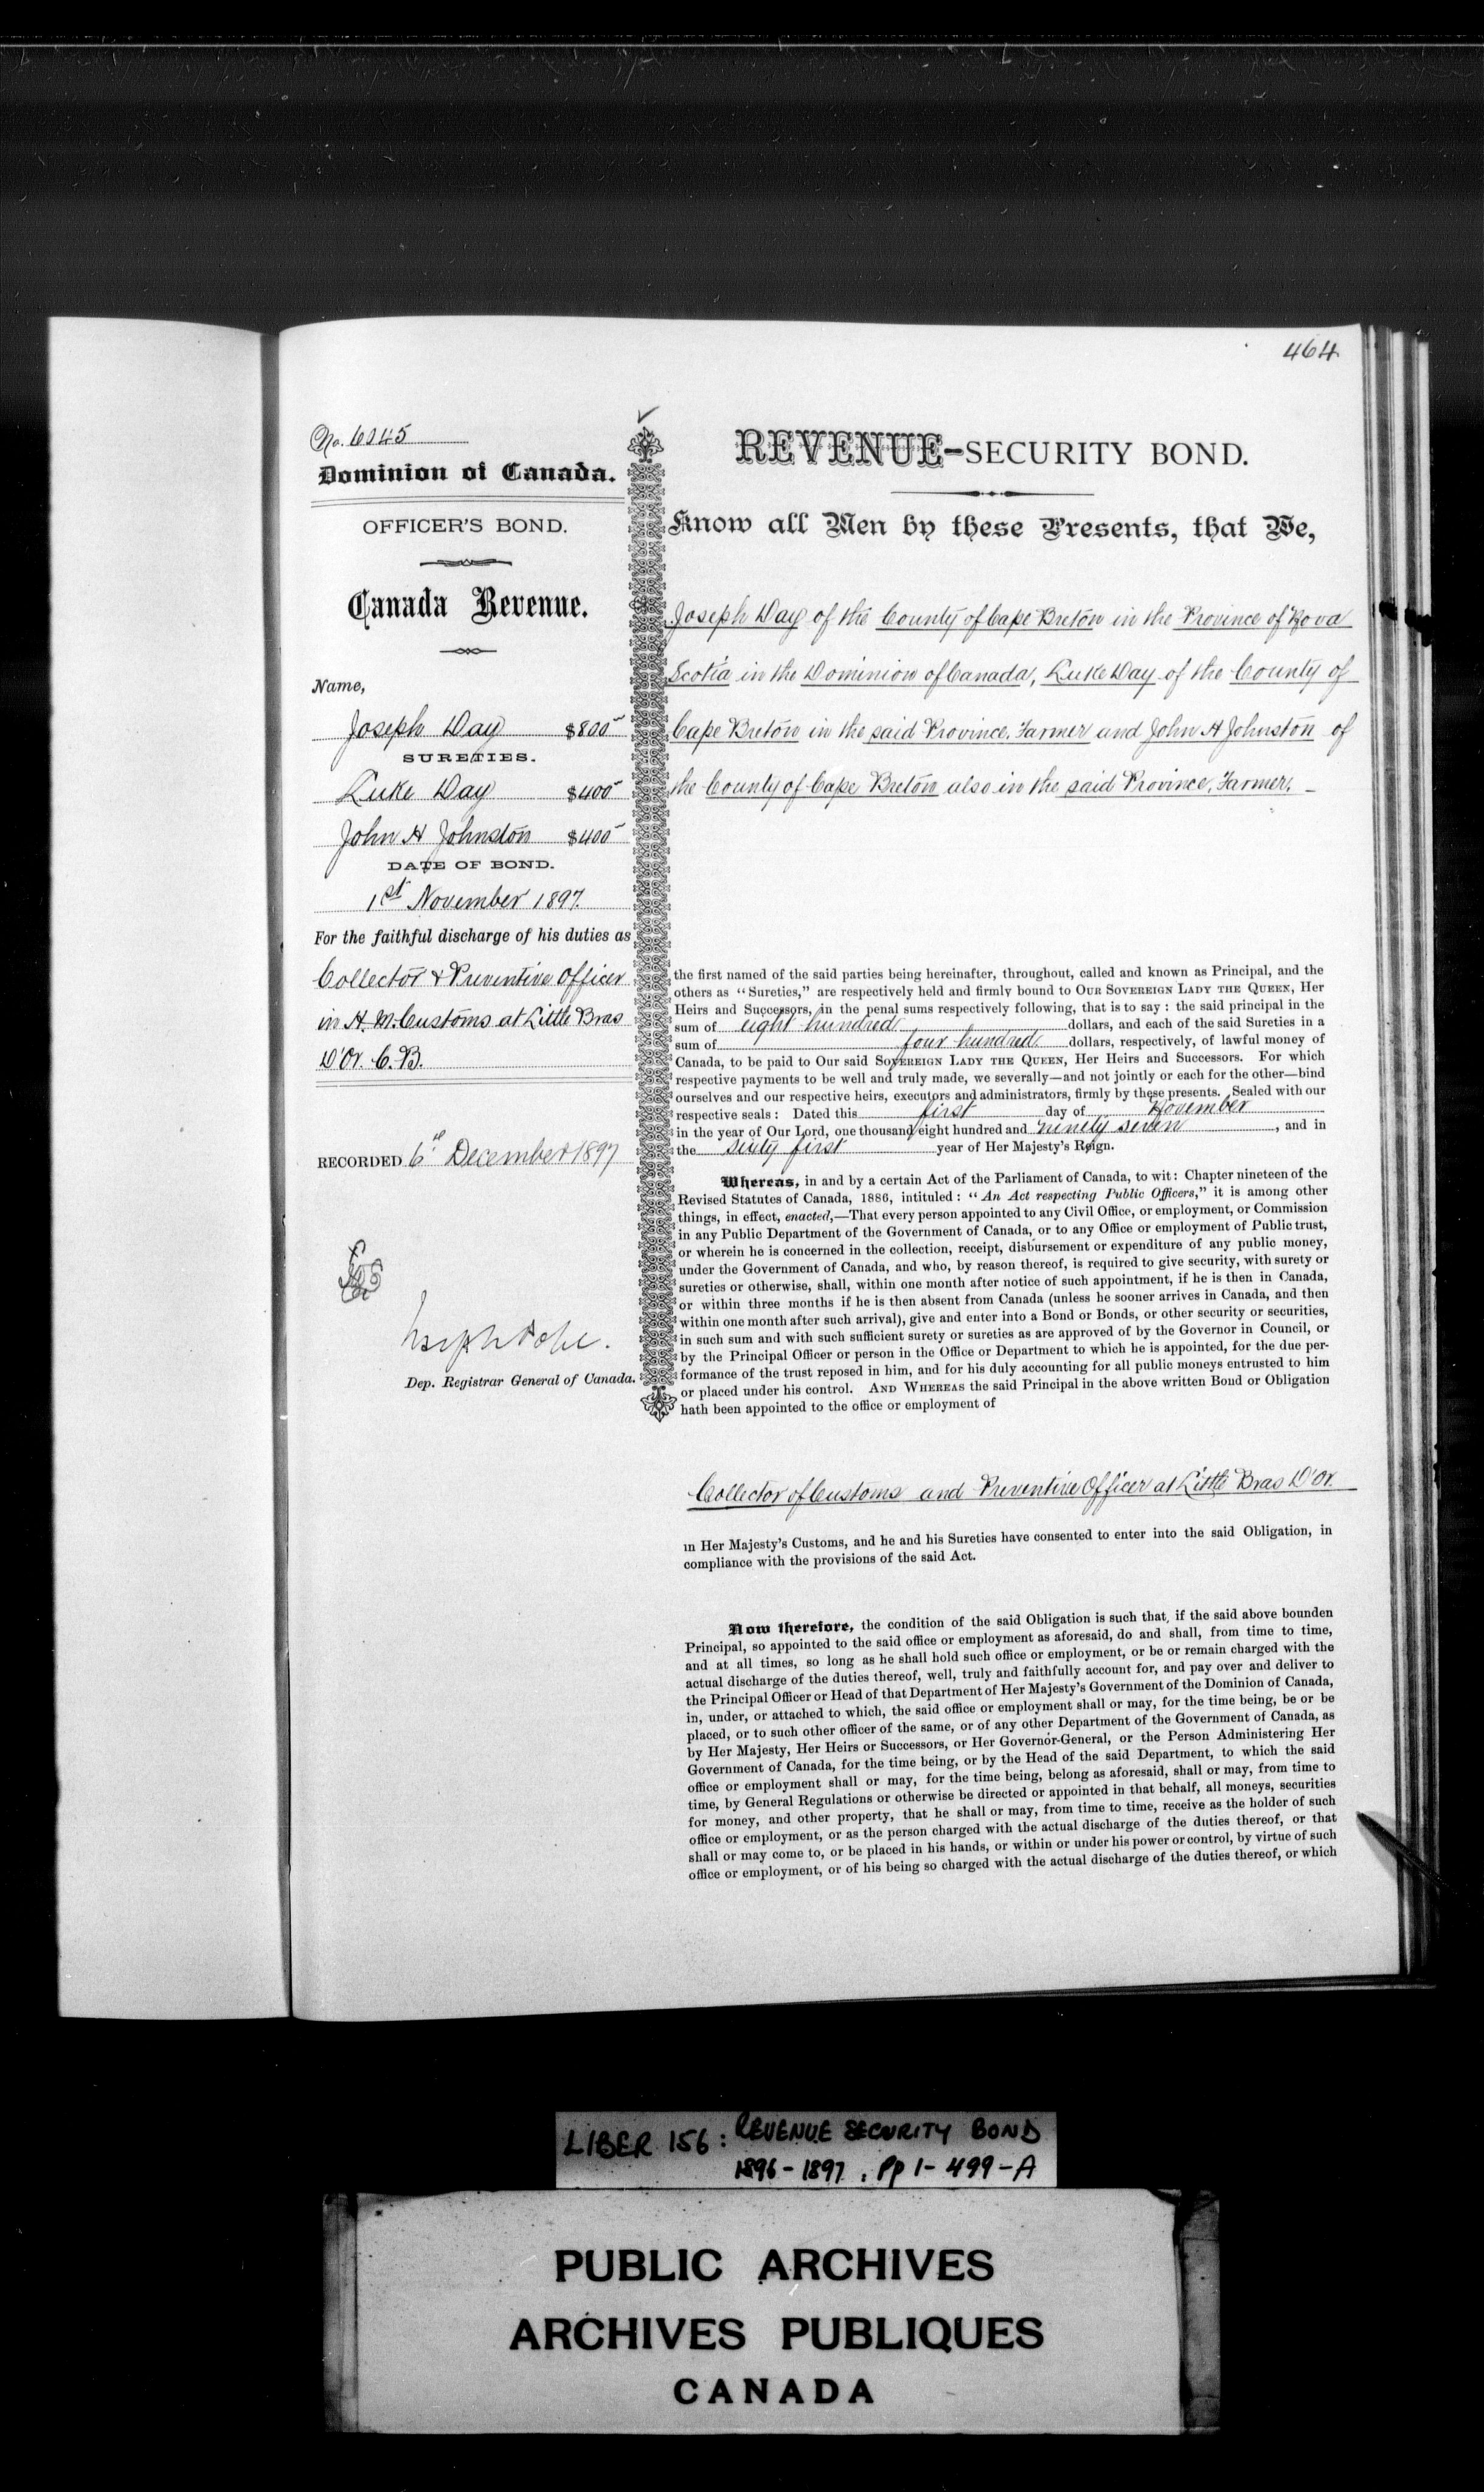 464
No. 6045
Dominion of Canada.
OFFICER'S BOND.
Canada Revenue.
Name,
Joseph Day $800
SURETIES.
Luke Day $400
John H Johnston $400
DATE OF BOND.
1st November 1897.
For the faithful discharge of his duties as
Collector & Preventive Officer
in H. M. Customs at Little Bras
D'Or. C. B.
RECORDED 6th December 1897
Joseph Pope.
Dep. Registrar General of Canada.
REVENUE-SECURITY BOND.
Know all Men by these Presents, that We,
Joseph Day of the County of Cape Breton in the Province of Nova
Scotia in the Dominion of Canada, Luke Day of the County of
Cape Breton in the said Province, Farmer and John H Johnston of
the County of Cape Breton also in the said Province, Farmer.
the first named of the said parties being hereinafter, throughout, called and known as Principal, and the
others as "Sureties," are respectively held and firmly bound to OUR SOVEREIGN LADY THE QUEEN, Her
Heirs and Successors, in the penal sums respectively following, that is to say : the said principal in the
sum of eight hundred dollars, and each of the said Sureties in a
sum of four hundred dollars, respectively, of lawful money of
Canada, to be paid to Our said SOVEREIGN LADY THE QUEEN, Her Heirs and Successors. For which
respective payments to be well and truly made, we severally—and not jointly or each for the other—bind
ourselves and our respective heirs, executors and administrators, firmly by these presents. Sealed with our
respective seals : Dated this first day of November
in the year of Our Lord, one thousand eight hundred and ninety seven, and in
the sixty first year of Her Majesty's Reign.
Whereas, in and by a certain Act of the Parliament of Canada, to wit: Chapter nineteen of the
Revised Statutes of Canada, 1886, intituled : "An Act respecting Public Officers," it is among other
things, in effect, enacted,—That every person appointed to any Civil Office, or employment, or Commission
in any Public Department of the Government of Canada, or to any Office or employment of Public trust,
or wherein he is concerned in the collection, receipt, disbursement or expenditure of any public money,
under the Government of Canada, and who, by reason thereof, is required to give security, with surety or
sureties or otherwise, shall, within one month after notice of such appointment, if he is then in Canada,
or within three months if he is then absent from Canada (unless he sooner arrives in Canada, and then
within one month after such arrival), give and enter into a Bond or Bonds, or other security or securities,
in such sum and with such sufficient surety or sureties as are approved of by the Governor in Council, or
by the Principal Officer or person in the Office or Department to which he is appointed, for the due per-
formance of the trust reposed in him, and for his duly accounting for all public moneys entrusted to him
or placed under his control. AND WHEREAS the said Principal in the above written Bond or Obligation
hath been appointed to the office or employment of
Collector of Customs and Preventive Officer at Little Bras D'Or.
in Her Majesty's Customs, and he and his Sureties have consented to enter into the said Obligation, in
compliance with the provisions of the said Act.
Now therefore, the condition of the said Obligation is such that, if the said above bounden
Principal, so appointed to the said office or employment as aforesaid, do and shall, from time to time,
and at all times, so long as he shall hold such office or employment, or be or remain charged with the
actual discharge of the duties thereof, well, truly and faithfully account for, and pay over and deliver to
the Principal Officer or Head of that Department of Her Majesty's Government of the Dominion of Canada,
in, under, or attached to which, the said office or employment shall or may, for the time being, be or be
placed, or to such other officer of the same, or of any other Department of the Government of Canada, as
by Her Majesty, Her Heirs or Successors, or Her Governor-General, or the Person Administering Her
Government of Canada, for the time being, or by the Head of the said Department, to which the said
office or employment shall or may, for the time being, belong as aforesaid, shall or may, from time to
time, by General Regulations or otherwise be directed or appointed in that behalf, all moneys, securities
for money, and other property, that he shall or may, from time to time, receive as the holder of such
office or employment, or as the person charged with the actual discharge of the duties thereof, or that
shall or may come to, or be placed in his hands, or within or under his power or control, by virtue of such
office or employment, or of his being so charged with the actual discharge of the duties thereof, or which
LIBER 156: REVENUE SECURITY BOND
1896-1897, Pp 1-499-A
PUBLIC ARCHIVES
ARCHIVES PUBLIQUES
CANADA